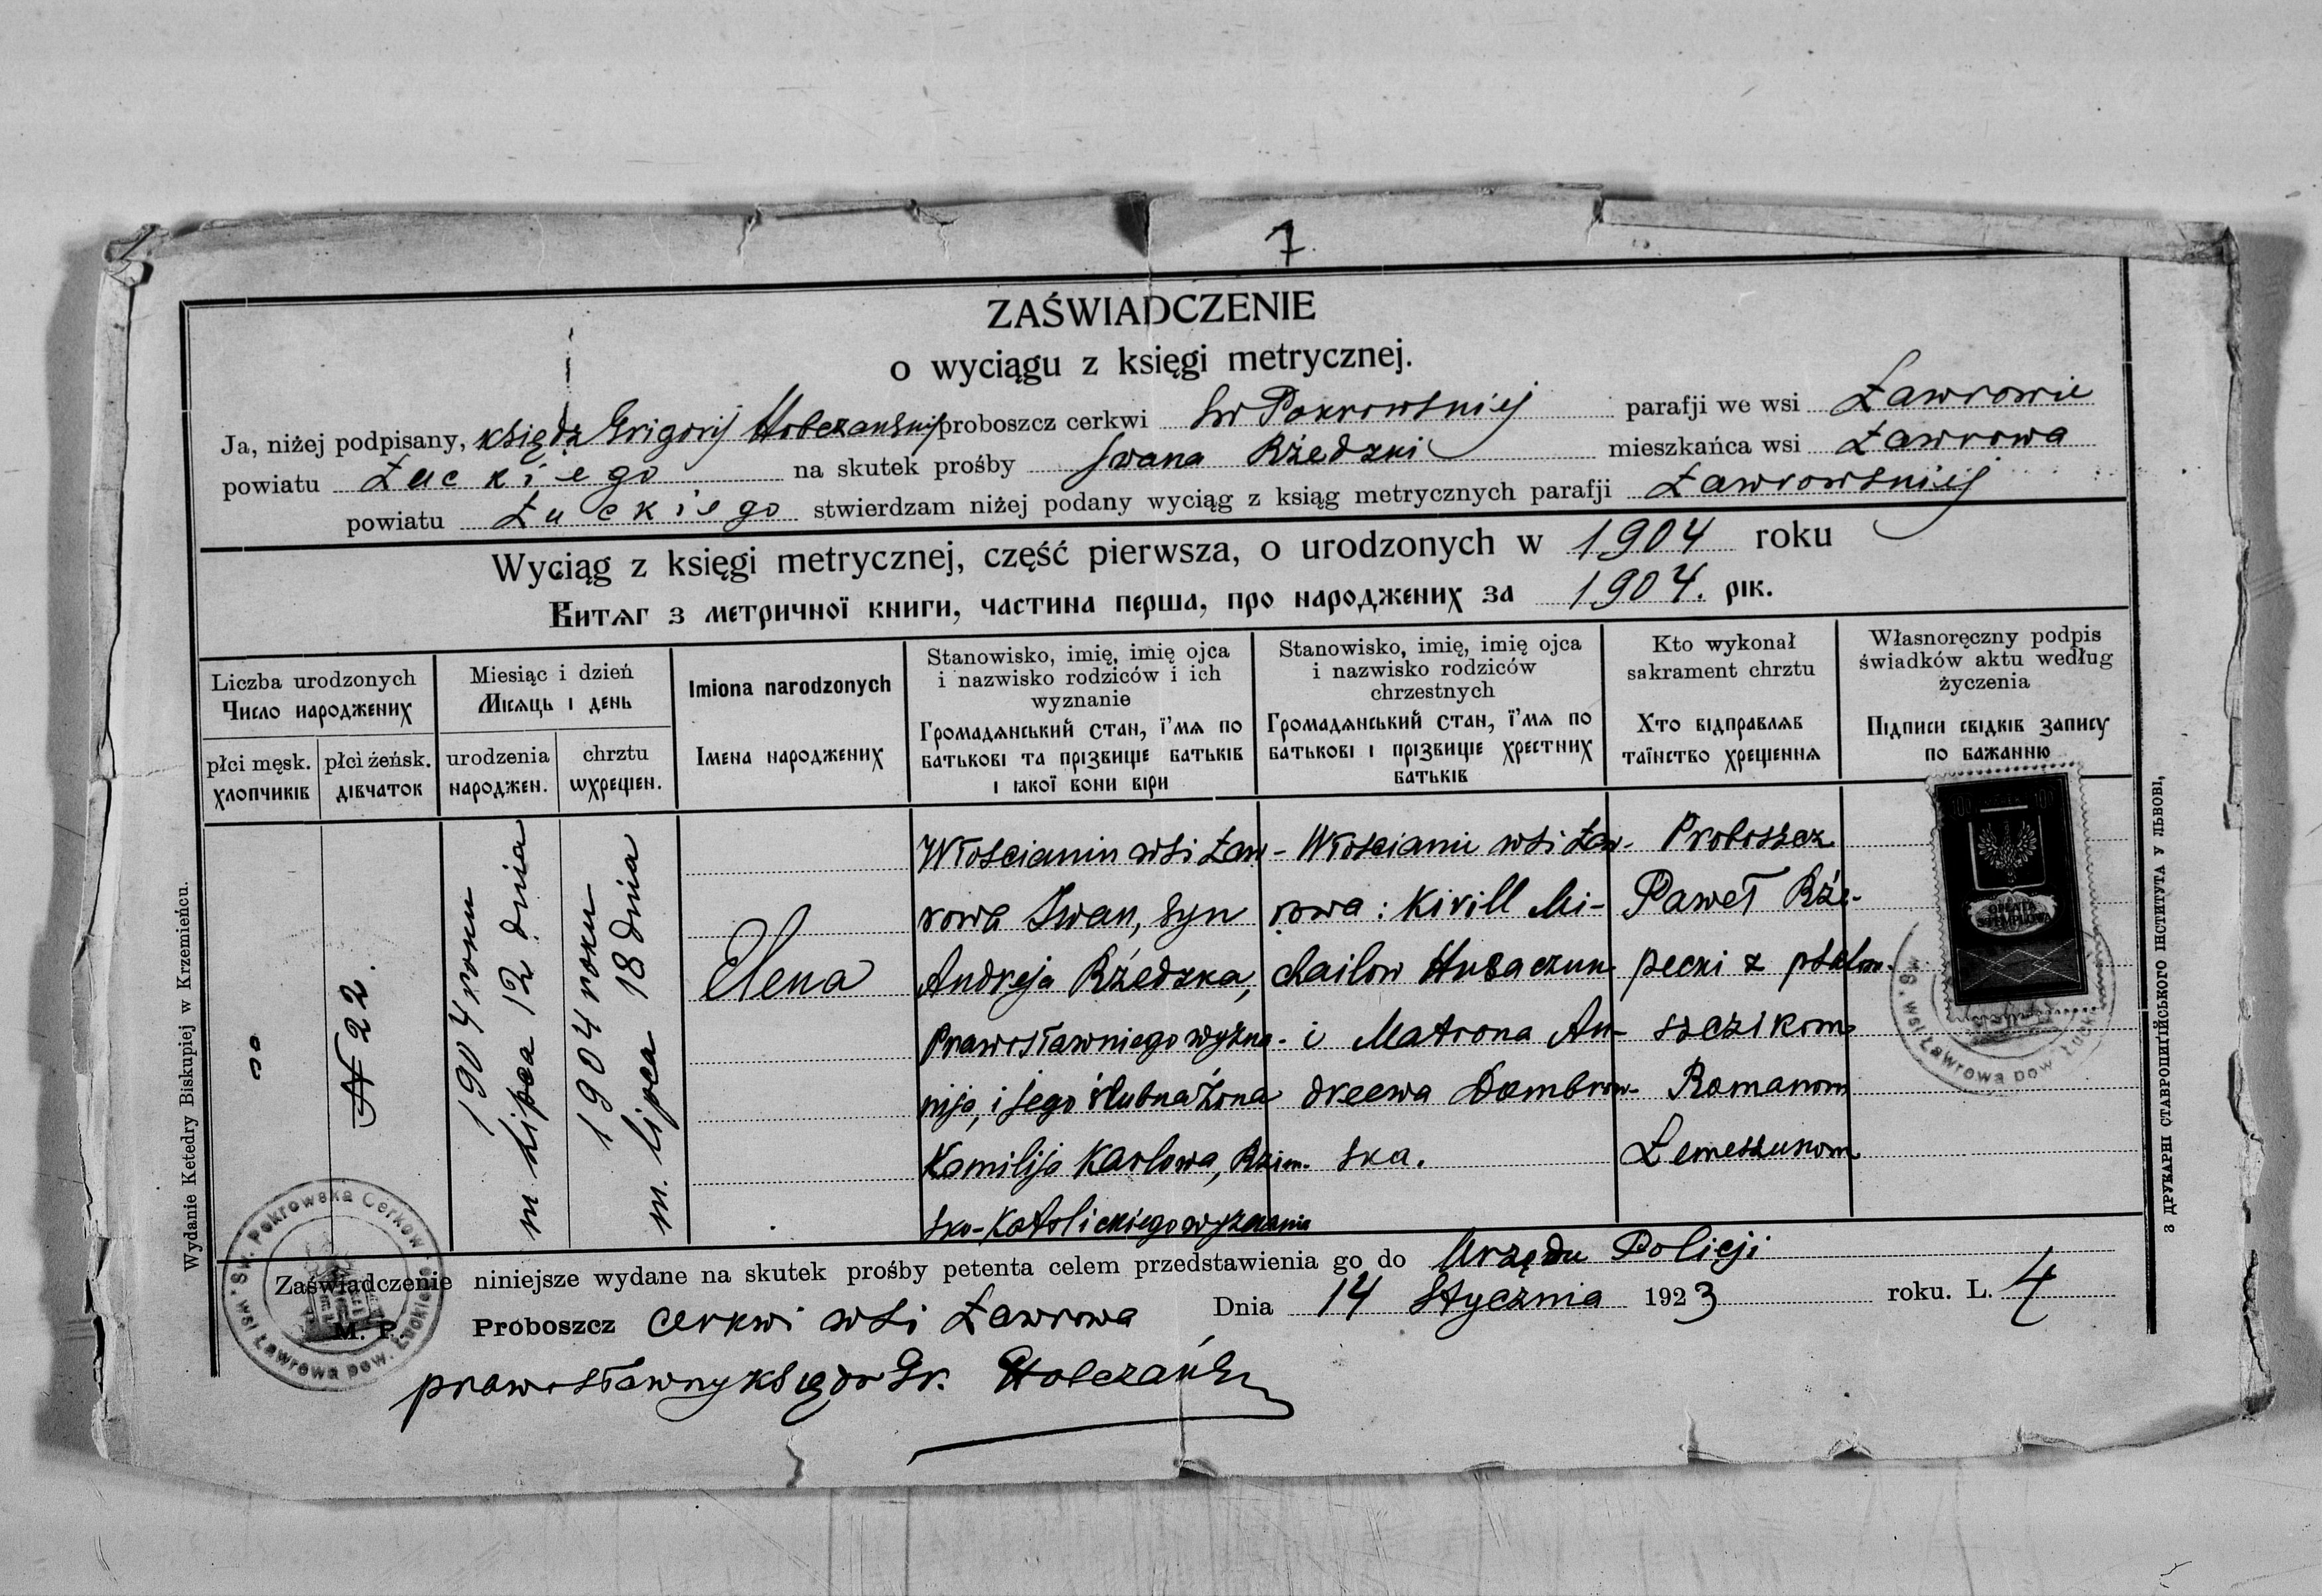 7
ZAŚWIADCZENIE
o wyciągu z księgi metrycznej.
Ja, niżej podpisany, ksiądz Grigorij proboszcz cerkwi Św Pokrowskiej parafji we wsi Ławrowie
powiatu Łuckiego na skutek prośby Iwana Rżedzki mieszkańca wsi Ławrowa
powiatu Łuckiego stwierdzam niżej podany wyciąg z ksiąg metrycznych parafji Ławrowskiej
Wyciąg z księgi metrycznej, część pierwsza, o urodzonych w 1904 roku
Витяг з метричної книги, частина перша, про народжених за 1904. рік.
Liczba urodzonych
Число народжених
płci męsk.
хлопчиків
płci żeńsk.
дівчаток
Miesiąc i dzień
Місяць і день
urodzenia
народжен.
chrztu
ѡхрещен.
Imiona narodzonych
Імена народжених
Stanowisko, imię, imię ojca
i nazwisko rodziców i ich
wyznanie
Громадянський стан, ї'мя по
батькові та прізвище батьків
і якої вони віри
Stanowisko, imię, imię ojca
i nazwisko rodziców
chrzestnych
Громадянський стан, ї'мя по
батькові і прізвище хрестних
батьків
Kto wykonał
sakrament chrztu
Хто відправляв
таїнство хрещення
Własnoręczny podpis
świadków aktu według
życzenia
Підписи свідків запису
по бажанню
N 22.
1904 roku
m Lipca 12 dnia
1904 roku
m. lipca 18 dnia
Elena
Włościanin wsi Ław-
rowa Iwan, syn
Andreja Rżedzka,
Prawosławniego wyzna-
nija, i jego ślubna żona
Kamilija Karlowa, Rzim-
sko-Katolickiego wyznania
Włościanie wsi Ław-
rowa: Kirill Mi-
chailow Husaczuk
i Matrona An-
dreewa Dombrow-
ska.
Proboszcz
Paweł Rże-
pecki z psalom-
szczikom
Romanom
Łemeszukom
100 100
OPŁATA
STEMPLOWA
Św. Pokrowska Cerkow
wsi Ławrowa pow. Łuckiego
wsi Ławrowa pow. Łuck
Zaświadczenie niniejsze wydane na skutek prośby petenta celem przedstawienia go do Urzędu Policji
Dnia 14 Stycznia 1923 roku. L. 4
M. P. Proboszcz cerkwi wsi Ławrowa
prawosławny ksiądz Gr.
Wydanie Ketedry Biskupiej w Krzemieńcu.
З ДРУКАРНІ СТАВРОПИГІЙСЬКОГО ІНСТИТУТА У ЛЬВОВІ,